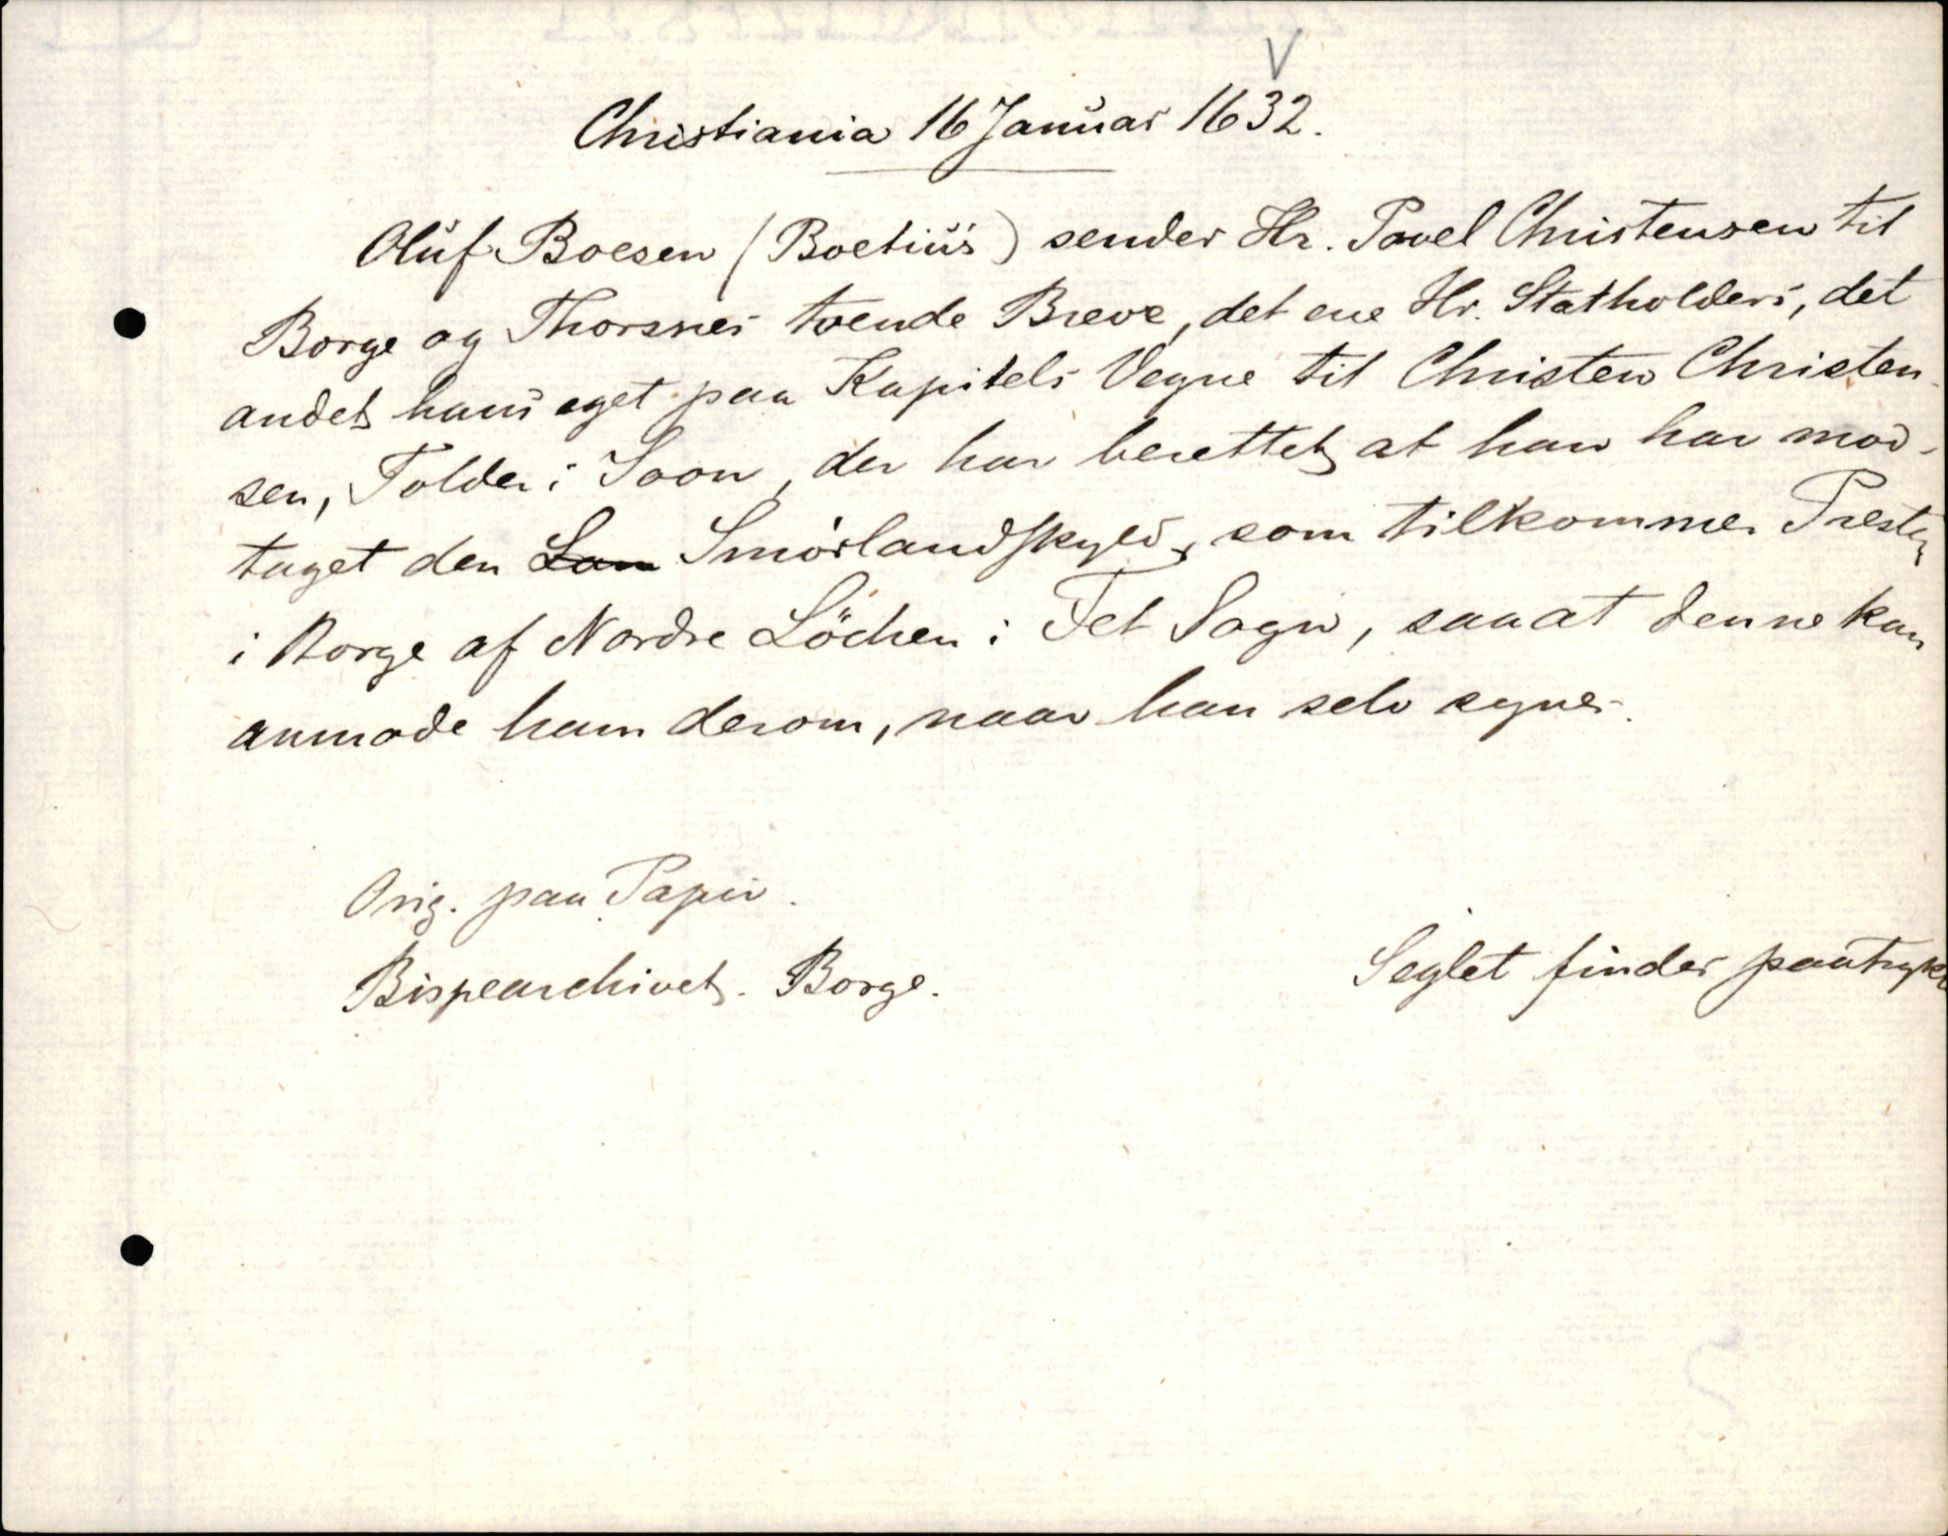 V
Christiania 16 Januar 1632.
Oluf Boesen (Boetius) sender Hr. Povel Christensen til
Borge og Thorsnes tvende Breve, det ene Hr. Statholders, det
andet hans eget paa Kapitels Vegne til Christen Christen-
sen, Tolder i Soon, der har berettet at han har mod-
taget den Lan Smörlandskyld, som tilkommer Presten
i Borge af Nordre Löchen i Fet Sogn, saaat denne kan
anmode ham derom, naar han selv synes.
Orig. paa Papir.
Bispearchivet. Borge.
Seglet findes paatrykt